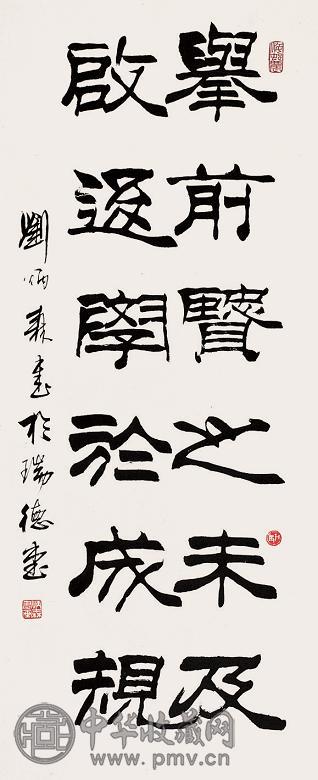 舉前賢之未及
啟後學於成規
劉炳森書於瑞德堂
中华收藏网
www.pmv.cn